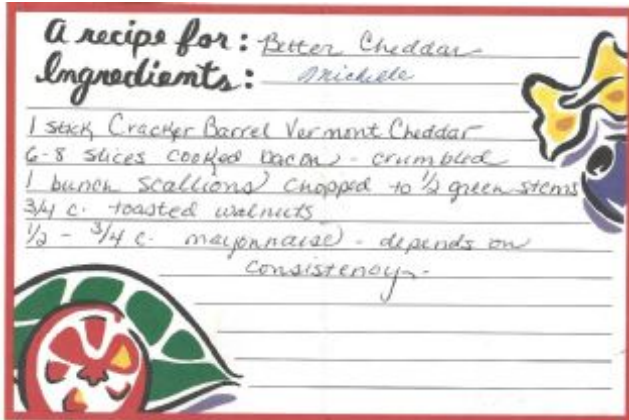 a recipe for: Better Cheddar
Ingredients: Michele
1 stick Cracker Barrel Vermont Cheddar
6-8 slices cooked bacon - crumbled
1 bunch scallions chopped to 1/2 green stems
3/4 c. toasted walnuts
1/2 - 3/4 c. mayonnaise - depends on
consistency.